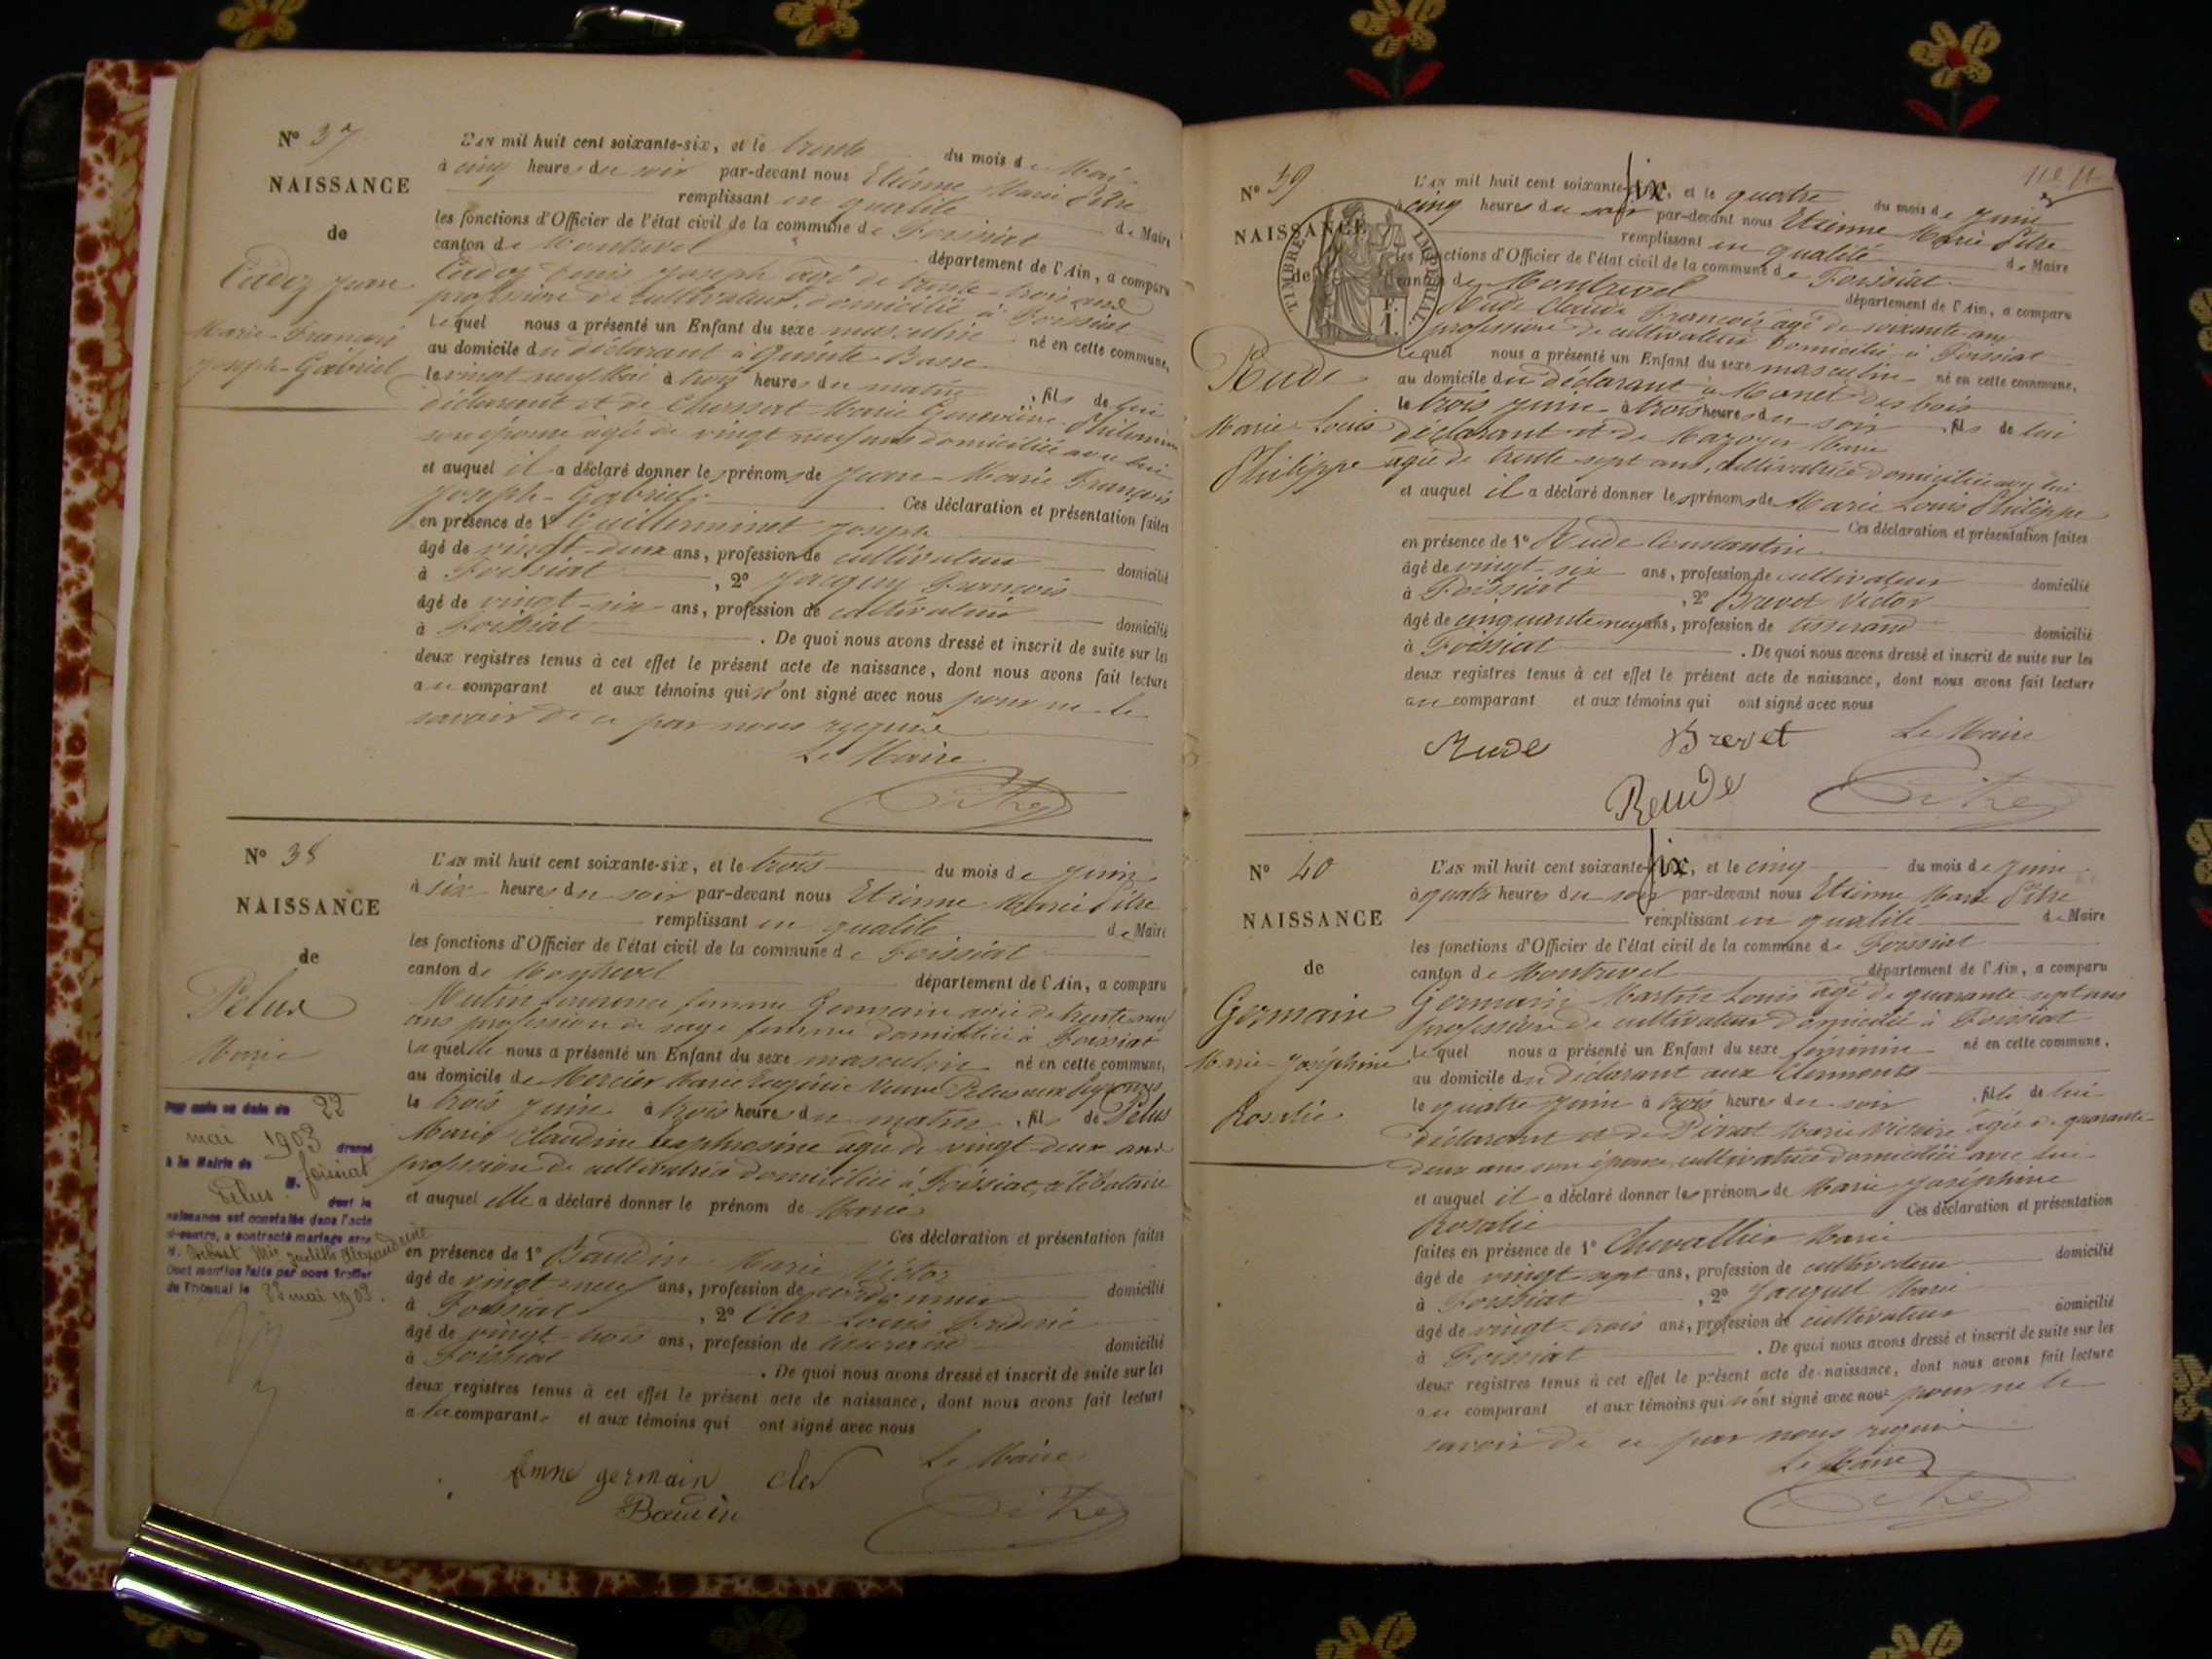 N° 37
NAISSANCE
de
Cadoz Jean
Marie-François
Joseph-Gabriel
L'AN mil huit cent soixante-six, et le trente du mois de Mai
à cinq heures du soir par-devant nous Etienne Marie Pitre
remplissant en qualité de Maire
les fonctions d'Officier de l'état civil de la commune de Foissiat
canton de Montrevel département de l'Ain, a comparu
Cadoz Denis Joseph âgé de trente-trois ans
profession de cultivateur, domicilié à Foissiat
Lequel nous a présenté un Enfant du sexe masculin né en cette commune,
au domicile du déclarant à Quinte Basse
le vingt neuf Mai à trois heures du matin, fils de lui
déclarant et de Chossat Marie Geneviève Philomène
son épouse agée de vingt neuf ans domiciliée avec lui
et auquel il a déclaré donner les prénoms de Jean-Marie François
Joseph-Gabriel Ces déclaration et présentation faites
en présence de 1° Guillerminet Joseph
âgé de vingt-deux ans, profession de cultivateur domicilié
à Foissiat, 2° Jacquy François
âgé de vingt-six ans, profession de cultivateur domicilié
à Foissiat. De quoi nous avons dressé et inscrit de suite sur les
deux registres tenus à cet effet le présent acte de naissance, dont nous avons fait lecture
au comparant et aux témoins qui n'ont signé avec nous pour ne le
savoir de ce par nous requis
Le Maire
Pitre
N° 38
NAISSANCE
de
Pelus
Marie
Par acte en date du 22
mai 1903 dressé
à la Mairie de Foissiat
M. Pelus dont la
naissance est constatée dans l'acte
ci-contre, a contracté mariage avec
M. Mie Judith Alexandrine
Dont mention faite par nous Greffier
du Tribunal le 28 mai 1903.
L'AN mil huit cent soixante-six, et le trois du mois de Juin
à six heures du soir par-devant nous Etienne Marie Pitre
remplissant en qualité de Maire
les fonctions d'Officier de l'état civil de la commune de Foissiat
canton de Montrevel département de l'Ain, a comparu
Mutin Laurence femme Germain agée de trente neuf
ans profession de sage femme domiciliée à Foissiat
Laquelle nous a présenté un Enfant du sexe masculin né en cette commune,
au domicile de Mercier Marie Eugénie Veuve Pelus aux
le trois Juin à trois heures du matin, fils de Pelus
Marie Claudine Euphrosine agée de vingt-deux ans
profession de cultivatrice domiciliée à Foissiat, célibataire
et auquel elle a déclaré donner le prénom de Marie
Ces déclaration et présentation faites
en présence de 1° Baudin Marie Victor
âgé de vingt-neuf ans, profession de cordonnier domicilié
à Foissiat, 2° Cler Louis Frédéric
âgé de vingt-trois ans, profession de tisserand domicilié
à Foissiat. De quoi nous avons dressé et inscrit de suite sur les
deux registres tenus à cet effet le présent acte de naissance, dont nous avons fait lecture
a la comparante et aux témoins qui ont signé avec nous
Le Maire
femne germain cler
Baudin Pitre
N° 39
NAISSANCE
de
TIMBRE IMPÉRIAL
Rude
Marie Louis
Philippe
L'AN mil huit cent soixante-six, et le quatre du mois de Juin
à cinq heures du soir par-devant nous Etienne Marie Pitre
remplissant en qualité de Maire
les fonctions d'Officier de l'état civil de la commune de Foissiat
canton de Montrevel département de l'Ain, a comparu
Rude Claude François agé de soixante ans
profession de cultivateur domicilié à Foissiat
Lequel nous a présenté un Enfant du sexe masculin né en cette commune,
au domicile du déclarant à Monet des bois
le trois Juin à trois heures du soir, fils de lui
déclarant et de Mazoyer Marie
agée de trente sept ans, cultivatrice domiciliée avec lui
et auquel il a déclaré donner les prénoms de Marie Louis Philippe
Ces déclaration et présentation faites
en présence de 1° Rude Constantin
âgé de vingt-six ans, profession de cultivateur domicilié
à Foissiat, 2° Brevet Victor
âgé de cinquante neuf ans, profession de tisserand domicilié
à Foissiat. De quoi nous avons dressé et inscrit de suite sur les
deux registres tenus à cet effet le présent acte de naissance, dont nous avons fait lecture
au comparant et aux témoins qui ont signé avec nous
Rude Brevet Le Maire
Reude Pitre
N° 40
NAISSANCE
de
Germain
Marie-Joséphine
Rosalie
L'AN mil huit cent soixante-six, et le cinq du mois de Juin
à quatre heures du soir par-devant nous Etienne Marie Pitre
remplissant en qualité de Maire
les fonctions d'Officier de l'état civil de la commune de Foissiat
canton de Montrevel département de l'Ain, a comparu
Germain Martin Louis agé de quarante-sept ans
profession de cultivateur domicilié à Foissiat
Lequel nous a présenté un Enfant du sexe féminin né en cette commune,
au domicile du déclarant aux Clements
le quatre Juin à trois heures du soir, fille de lui
déclarant et de Pirrat Marie Victoire âgée de quarante-
deux ans son épouse, cultivatrice domiciliée avec lui
et auquel il a déclaré donner les prénoms de Marie Joséphine
Rosalie Ces déclaration et présentation
faites en présence de 1° Chevallier Marie
âgé de vingt-sept ans, profession de cultivateur domicilié
à Foissiat, 2° Jacquet Marie
âgé de vingt-trois ans, profession de cultivateur domicilié
à Foissiat. De quoi nous avons dressé et inscrit de suite sur les
deux registres tenus à cet effet le présent acte de naissance, dont nous avons fait lecture
au comparant et aux témoins qui n'ont signé avec nous pour ne le
savoir de ce par nous requis
Le Maire
Pitre